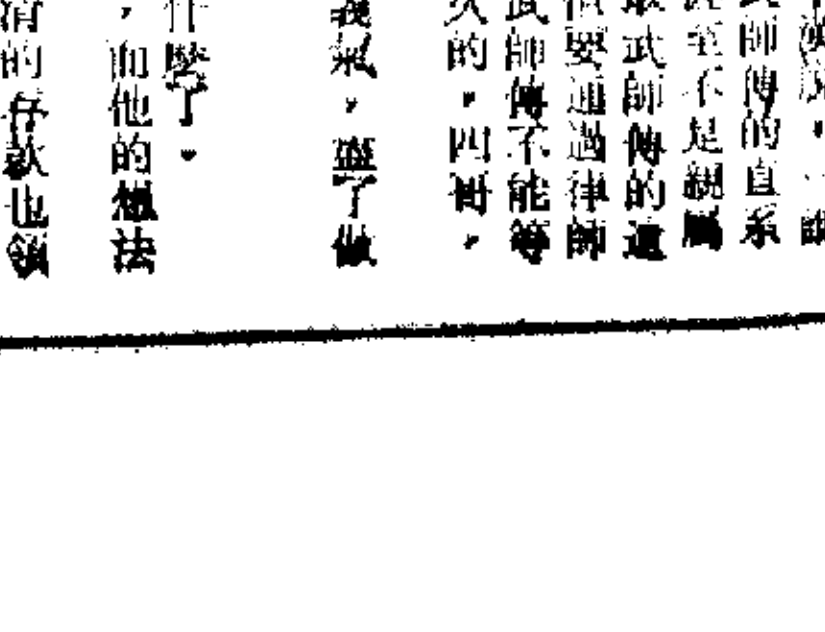 ，一
師傅的直系
至不是親屬
武師傅的遺
要通過律師
武師傅不能等
久的，四哥，
義氣，盡了做
什麼了。
，而他的想法
清的存款也領